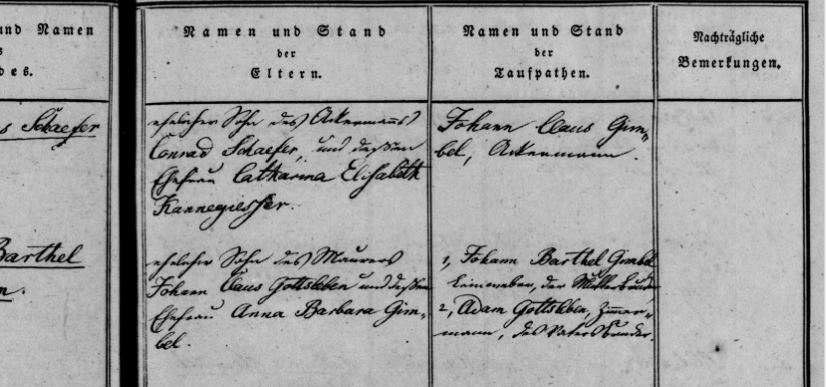 und Namen
s
des.
Namen und Stand
der
Eltern.
Namen und Stand
der
Taufpathen.
Nachträgliche
Bemerkungen.
s Schaefer
ehelicher Sohn des Ackermanns
Conrad Schaefer, und dessen
Ehefrau Catharina Elisabeth
Kannegiesser.
Johann Claus Gim-
bel, Ackermann.
Barthel
n.
ehelicher Sohn des Maurers
Johann Claus Gottsleben und dessen
Ehefrau Anna Barbara Gim-
bel.
1, Johann Barthel Gimbel
Leineweber, der Mutter Bruder
2, Adam Gottsleben, Zimmer-
mann, des Vaters Bruder.